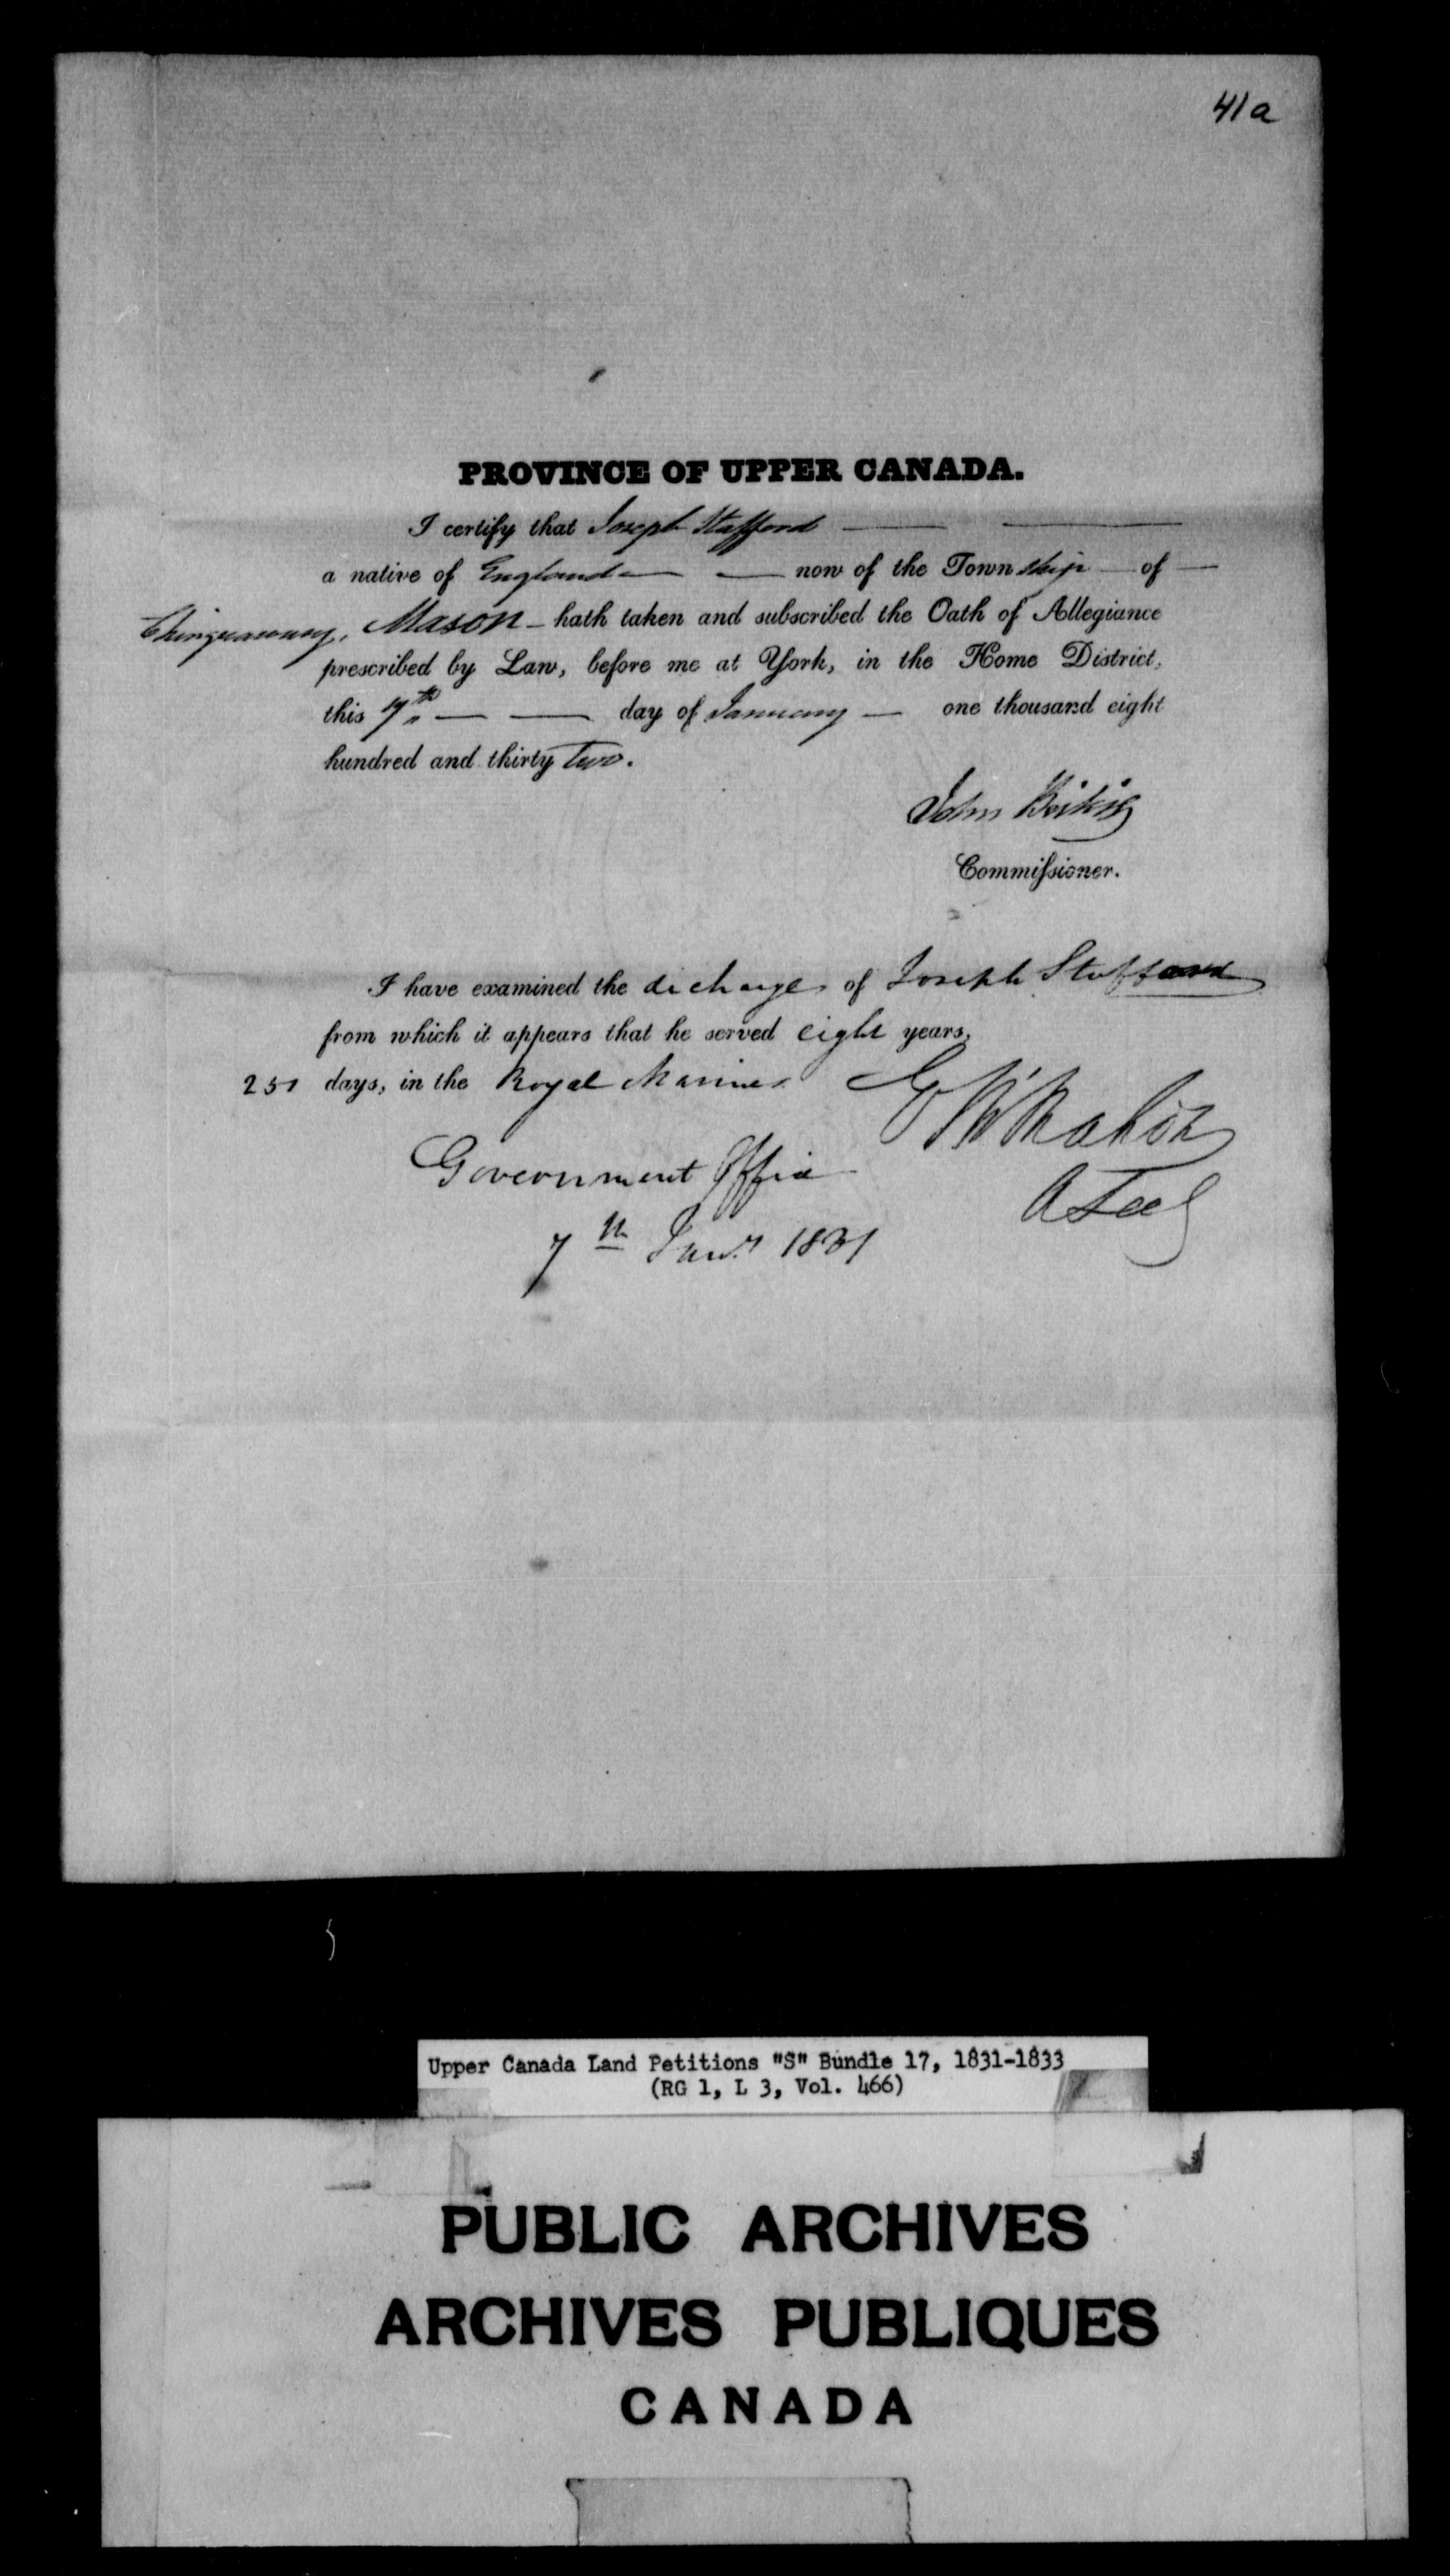 41a
PROVINCE OF UPPER CANADA.
I certify that Joseph Stafford
a native of England — — now of the Township — of —
Chinguacousy, Mason — hath taken and subscribed the Oath of Allegiance
prescribed by Law, before me at York, in the Home District,
this 7th — — day of January — one thousand eight
hundred and thirty two.
John Beikie
Commissioner.
I have examined the discharge of Joseph Stafford
from which it appears that he served eight years,
251 days, in the Royal Marines
Government Office
7th Jany 1831
Upper Canada Land Petitions "S" Bundle 17, 1831-1833
(RG 1, L 3, Vol. 466)
PUBLIC ARCHIVES
ARCHIVES PUBLIQUES
CANADA